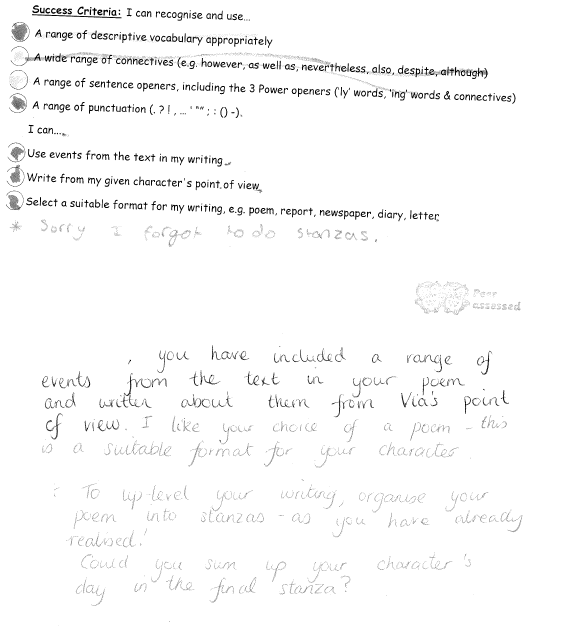 Success Criteria: I can recognise and use...
A range of descriptive vocabulary appropriately
A wide range of connectives (e.g. however, as well as, nevertheless, also, despite, although)
A range of sentence openers, including the 3 Power openers ('ly' words, 'ing' words & connectives)
A range of punctuation (. ? ! , ... ' "" ; : () -).
I can....
Use events from the text in my writing
Write from my given character's point of view
Select a suitable format for my writing, e.g. poem, report, newspaper, diary, letter
* Sorry I forgot to do stanzas.
Peer
assessed
, you have included a range of
events from the text in your poem
and written about them from Via's point
of view. I like your choice of a poem - this
is a suitable format for your character.
: To up-level your writing, organise your
poem into stanzas - as you have already
realised!
Could you sum up your character's
day in the final stanza?